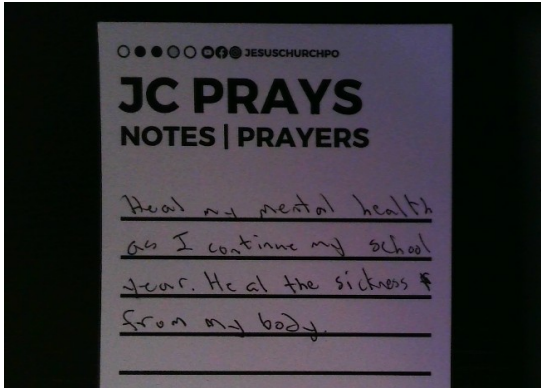 JESUSCHURCHPO
JC PRAYS
NOTES | PRAYERS
Heal my mental health
as I continue my school
year. Heal the sickness
from my body.